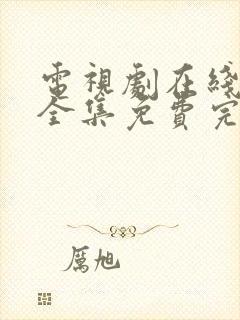 電視劇在綫
全集免費完
厲旭